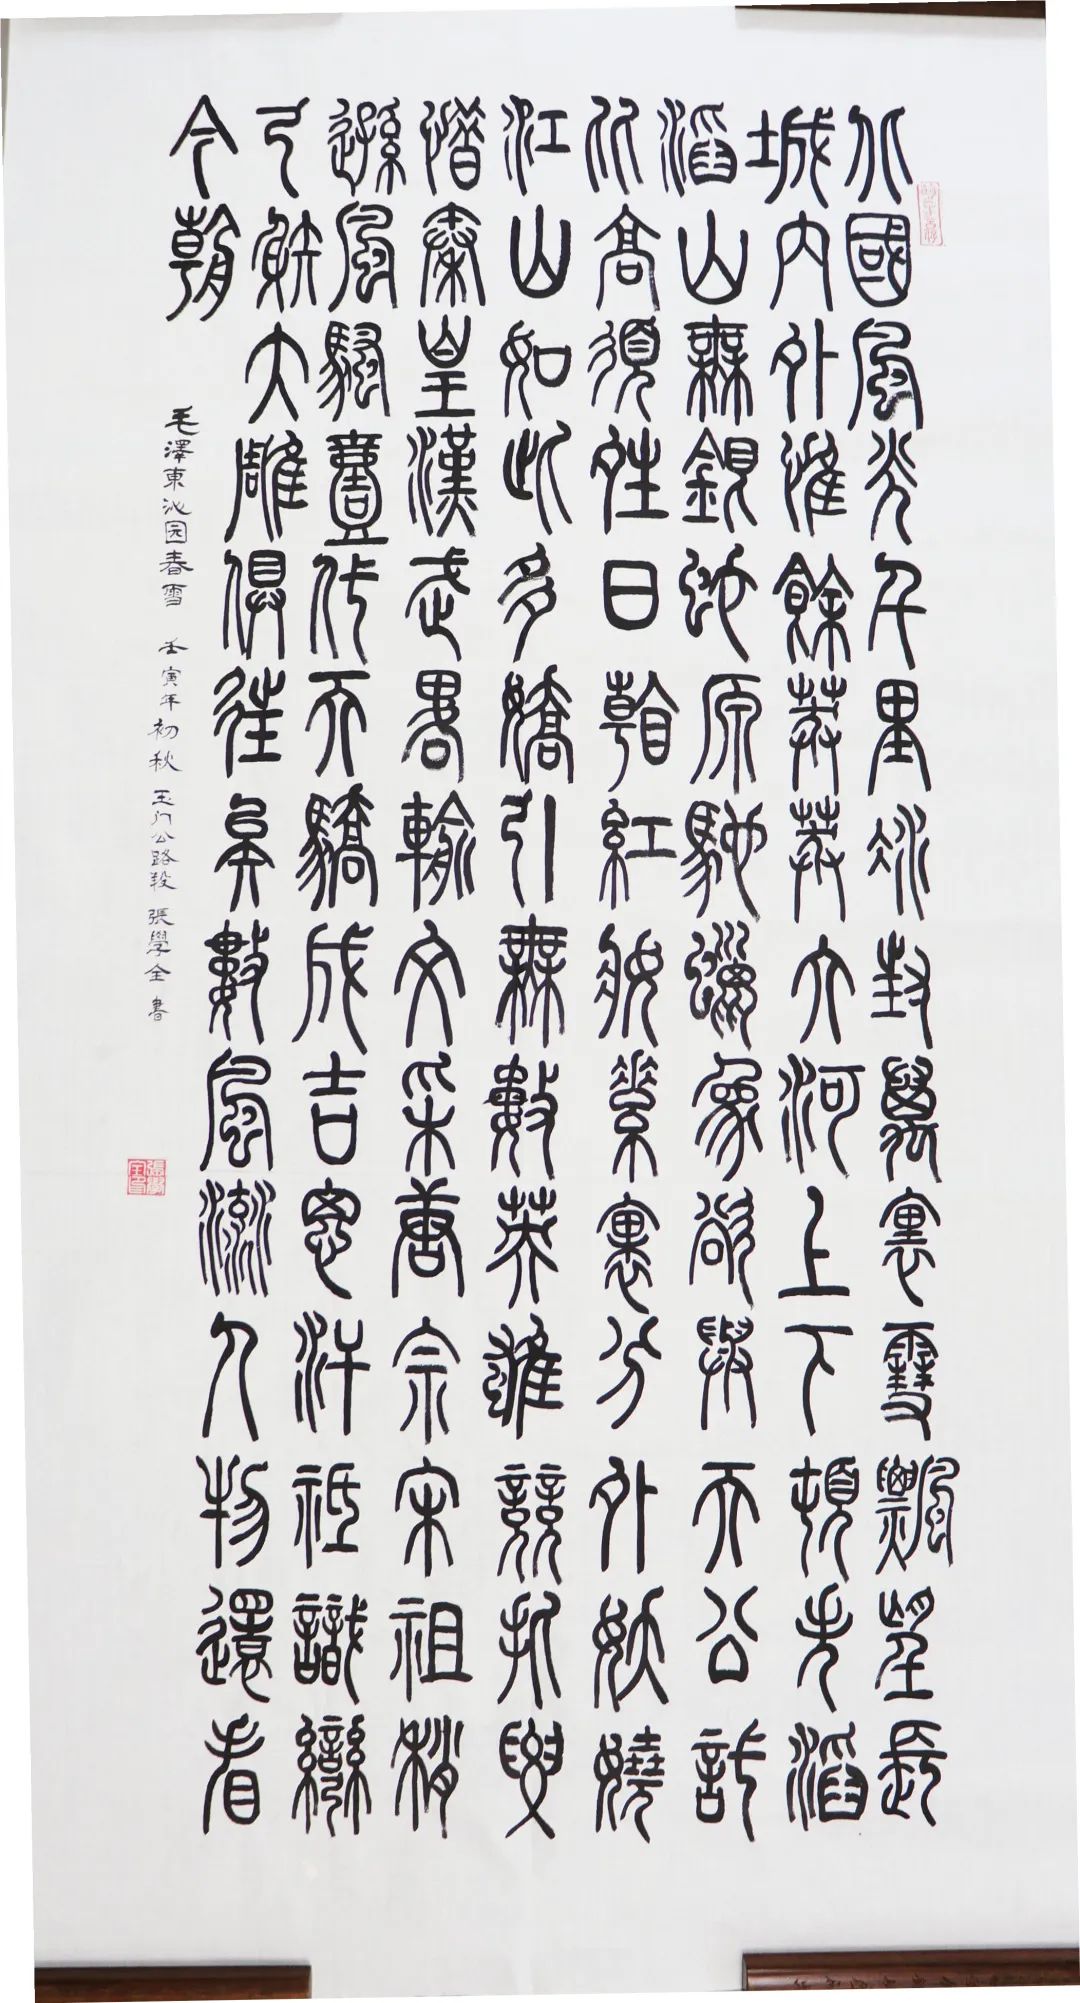 北國風光千里冰封萬裏雪飄望長
城內外惟餘莽莽大河上下頓失滔
滔山舞銀蛇原馳蠟象欲與天公試
比高須晴日看紅妝素裹分外妖嬈
江山如此多嬌引無數英雄競折腰
惜秦皇漢武略輸文采唐宗宋祖稍
遜風騷壹代天驕成吉思汗祗識彎
弓射大雕俱往矣數風流人物還看
今朝
毛澤東沁园春雪 壬寅年初秋 玉门公路段 張學全 書
張學全印